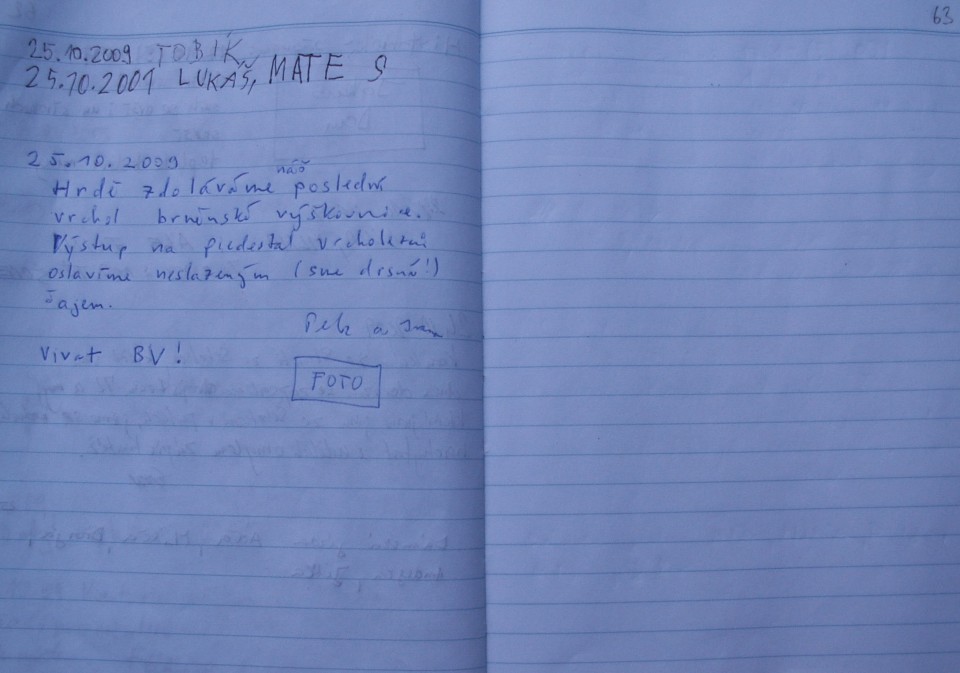 63
25.10.2009 TOBÍK,
25.10.2009 LUKÁŠ, MATE S
25.10.2009
náš
Hrdě zdoláváme poslední
vrchol brněnské výškovnice.
Výstup na piedestal vrcholení
oslavíme neslazeným (sme drsní!)
čajem.
Petr a
Vivat BV!
FOTO